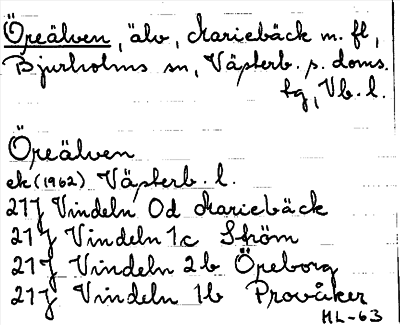 Öreälven, älv, Mariebäck m. fl,
Bjurholms sn, Västerb. s. doms.
tg, Vb. l.
Öreälven
ek (1962) Västerb. l.
21J Vindeln 0d Mariebäck
21J Vindeln 1c Ström
21J Vindeln 2b Öreborg
21J Vindeln 1b Provåker
HL-63